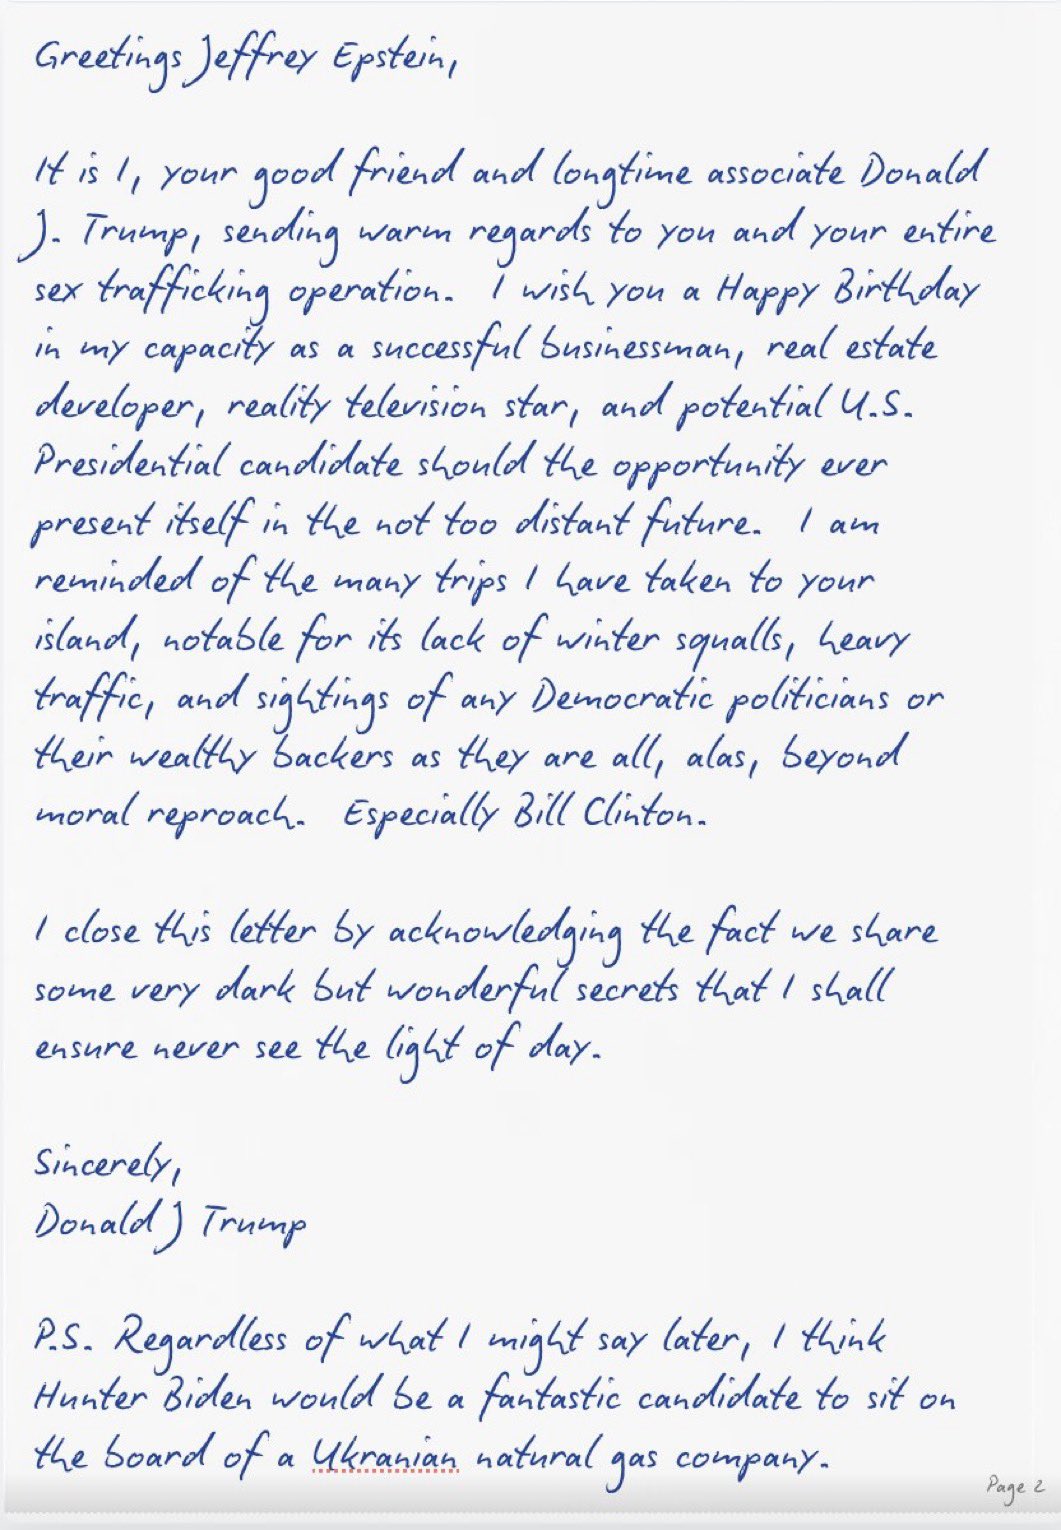 Greetings Jeffrey Epstein,
It is I, your good friend and longtime associate Donald
J. Trump, sending warm regards to you and your entire
sex trafficking operation. I wish you a Happy Birthday
in my capacity as a successful businessman, real estate
developer, reality television star, and potential U.S.
Presidential candidate should the opportunity ever
present itself in the not too distant future. I am
reminded of the many trips I have taken to your
island, notable for its lack of winter squalls, heavy
traffic, and sightings of any Democratic politicians or
their wealthy backers as they are all, alas, beyond
moral reproach. Especially Bill Clinton.
I close this letter by acknowledging the fact we share
some very dark but wonderful secrets that I shall
ensure never see the light of day.
Sincerely,
Donald J Trump
P.S. Regardless of what I might say later, I think
Hunter Biden would be a fantastic candidate to sit on
the board of a Ukranian natural gas company.
Page 2